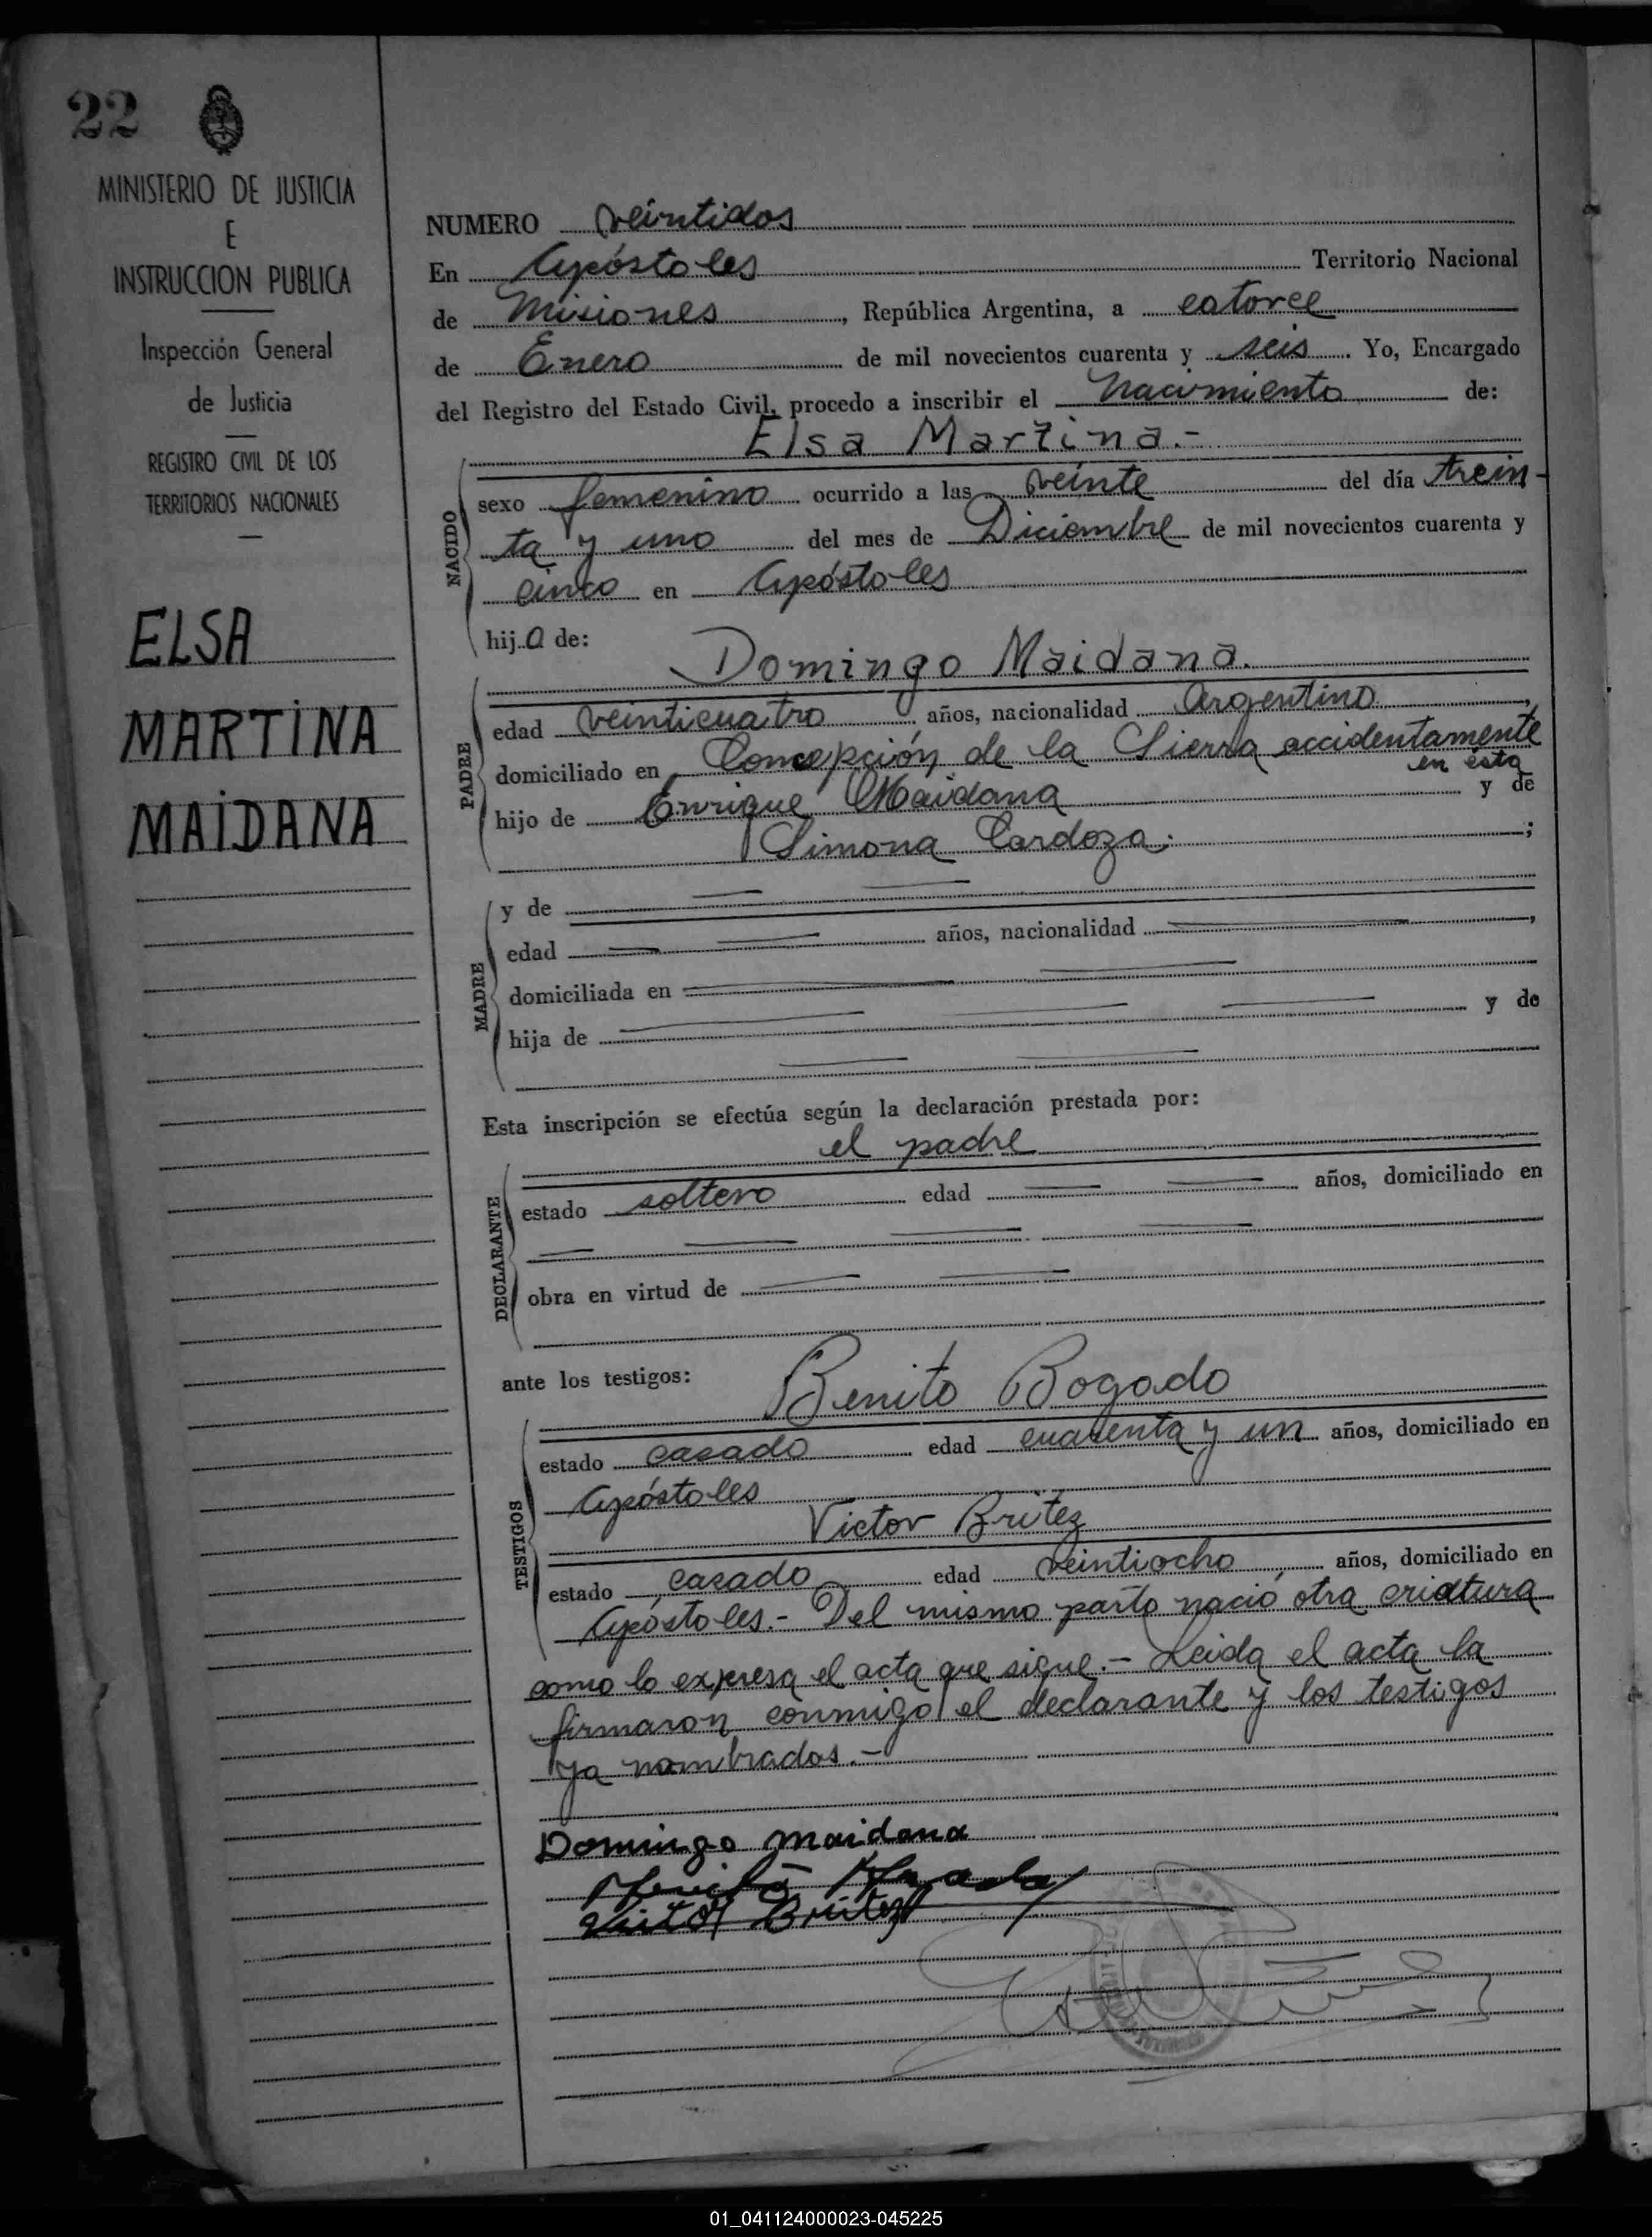 22
MINISTERIO DE JUSTICIA
E
INSTRUCCION PUBLICA
Inspección General
de Justicia
REGISTRO CIVIL DE LOS
TERRITORIOS NACIONALES
ELSA
MARTINA
MAIDANA
NUMERO veintidos
En Apóstoles Territorio Nacional
de Misiones, República Argentina, a catorce
de Enero de mil novecientos cuarenta y seis. Yo, Encargado
del Registro del Estado Civil, procedo a inscribir el Nacimiento de:
Elsa Martina.-
NACIDO
sexo femenino ocurrido a las veinte del día trein-
ta y uno del mes de Diciembre de mil novecientos cuarenta y
cinco en Apóstoles
hija de:
Domingo Maidana.
PADRE
edad veinticuatro años, nacionalidad Argentino,
domiciliado en Concepción de la Sierra accidentamente
en ésta
hijo de Enrique Maidana y de
Simona Cardoza.;
MADRE
y de
edad años, nacionalidad ,
domiciliada en
hija de y de
Esta inscripción se efectúa según la declaración prestada por:
el padre
DECLARANTE
estado soltero edad años, domiciliado en
obra en virtud de
ante los testigos:
Benito Bogado
TESTIGOS
estado casado edad cuarenta y un años, domiciliado en
Apóstoles
Victor Britez
estado casado edad veintiocho, años, domiciliado en
Apóstoles.- Del mismo parto nació otra criatura
como lo expresa el acta que sigue.- Leida el acta la
firmaron conmigo el declarante y los testigos
ya nombrados.-
Domingo maidana
Victor Britez
01_041124000023-045225